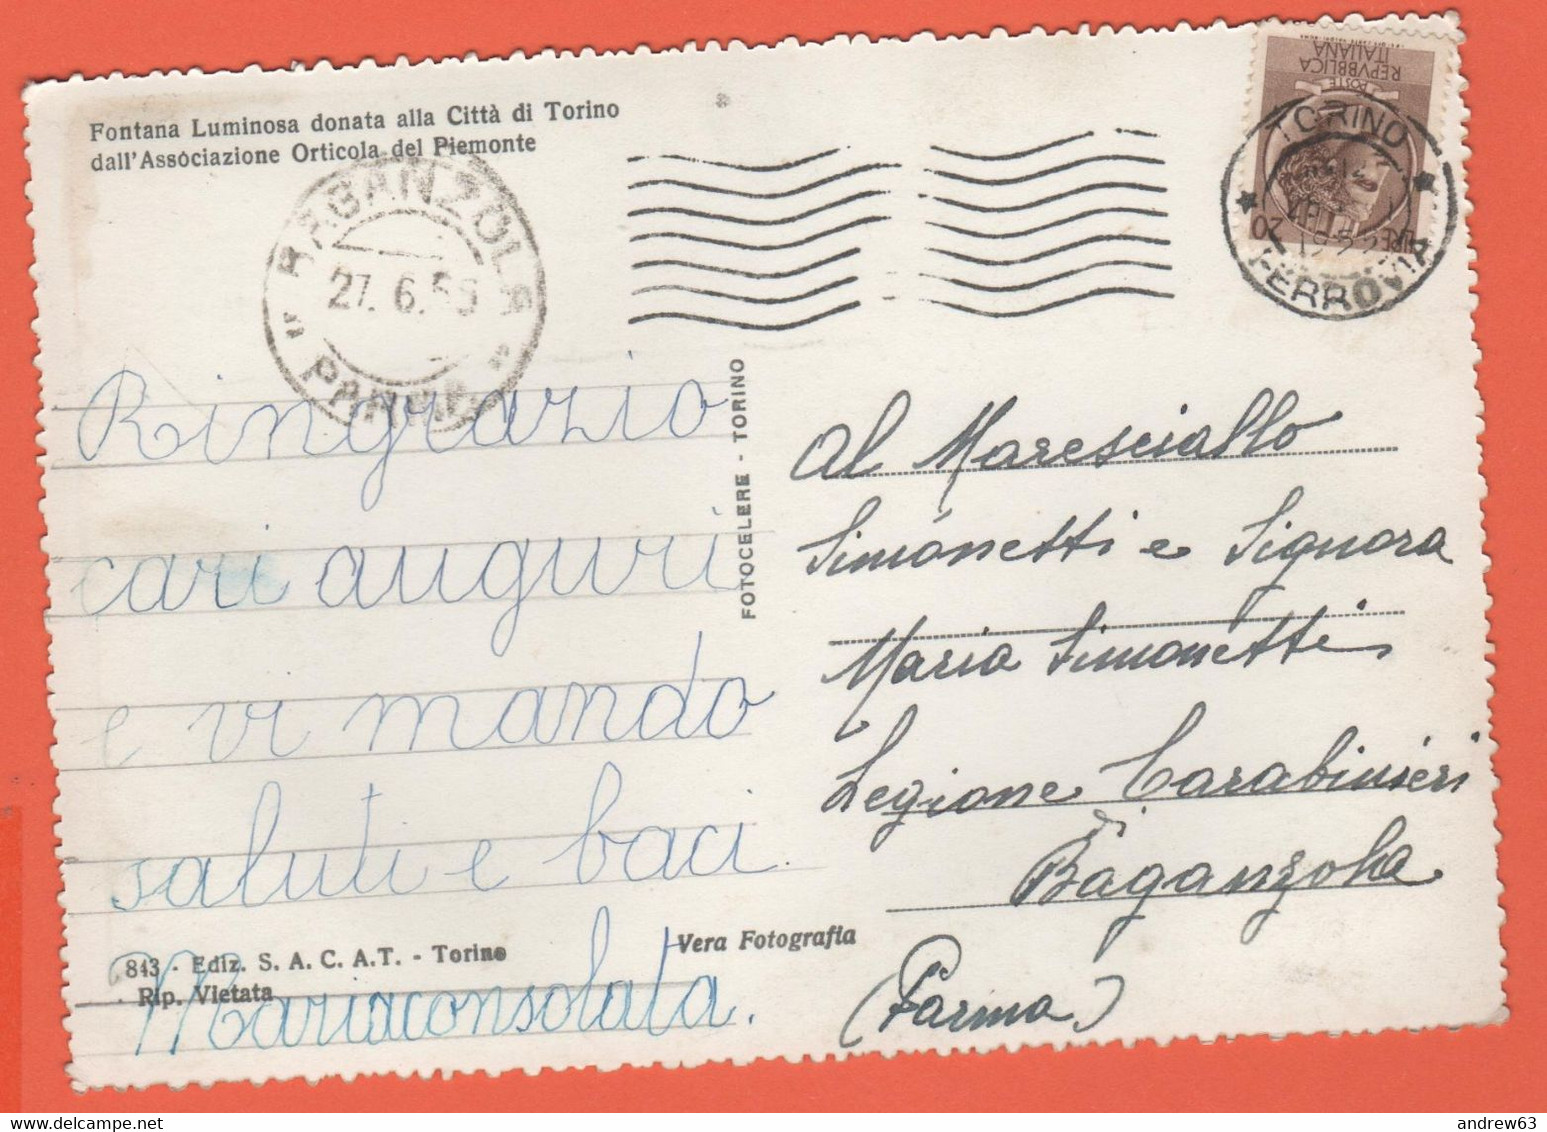 Fontana Luminosa donata alla Città di Torino
dall'Associazione Orticola del Piemonte
REPVBBLICA
ITALIANA
POSTE
LIRE 20
TORINO
FERROVIA
BAGANZOLA
27.6.55
PARMA
Ringrazio
cari auguri
e vi mando
saluti e baci
Mariaconsolata.
FOTOCELERE - TORINO
Al Maresciallo
Simonetti e Signora
Maria Simonetti
Legione Carabinieri
di
Baganzola
(Parma)
Vera Fotografia
843 - Ediz. S. A. C. A. T. - Torino
Rip. Vietata
andrew63